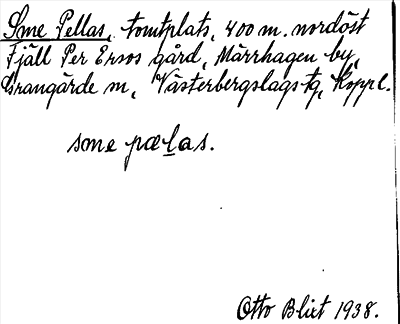 Sme Pellas, tomtplats, 400 m. nordöst
Fjäll Per Ersos gård, Märrhagen by,
Grangärde sn, Västerbergslags tg, Koppl.
sme pælas.
Otto Blixt 1938.